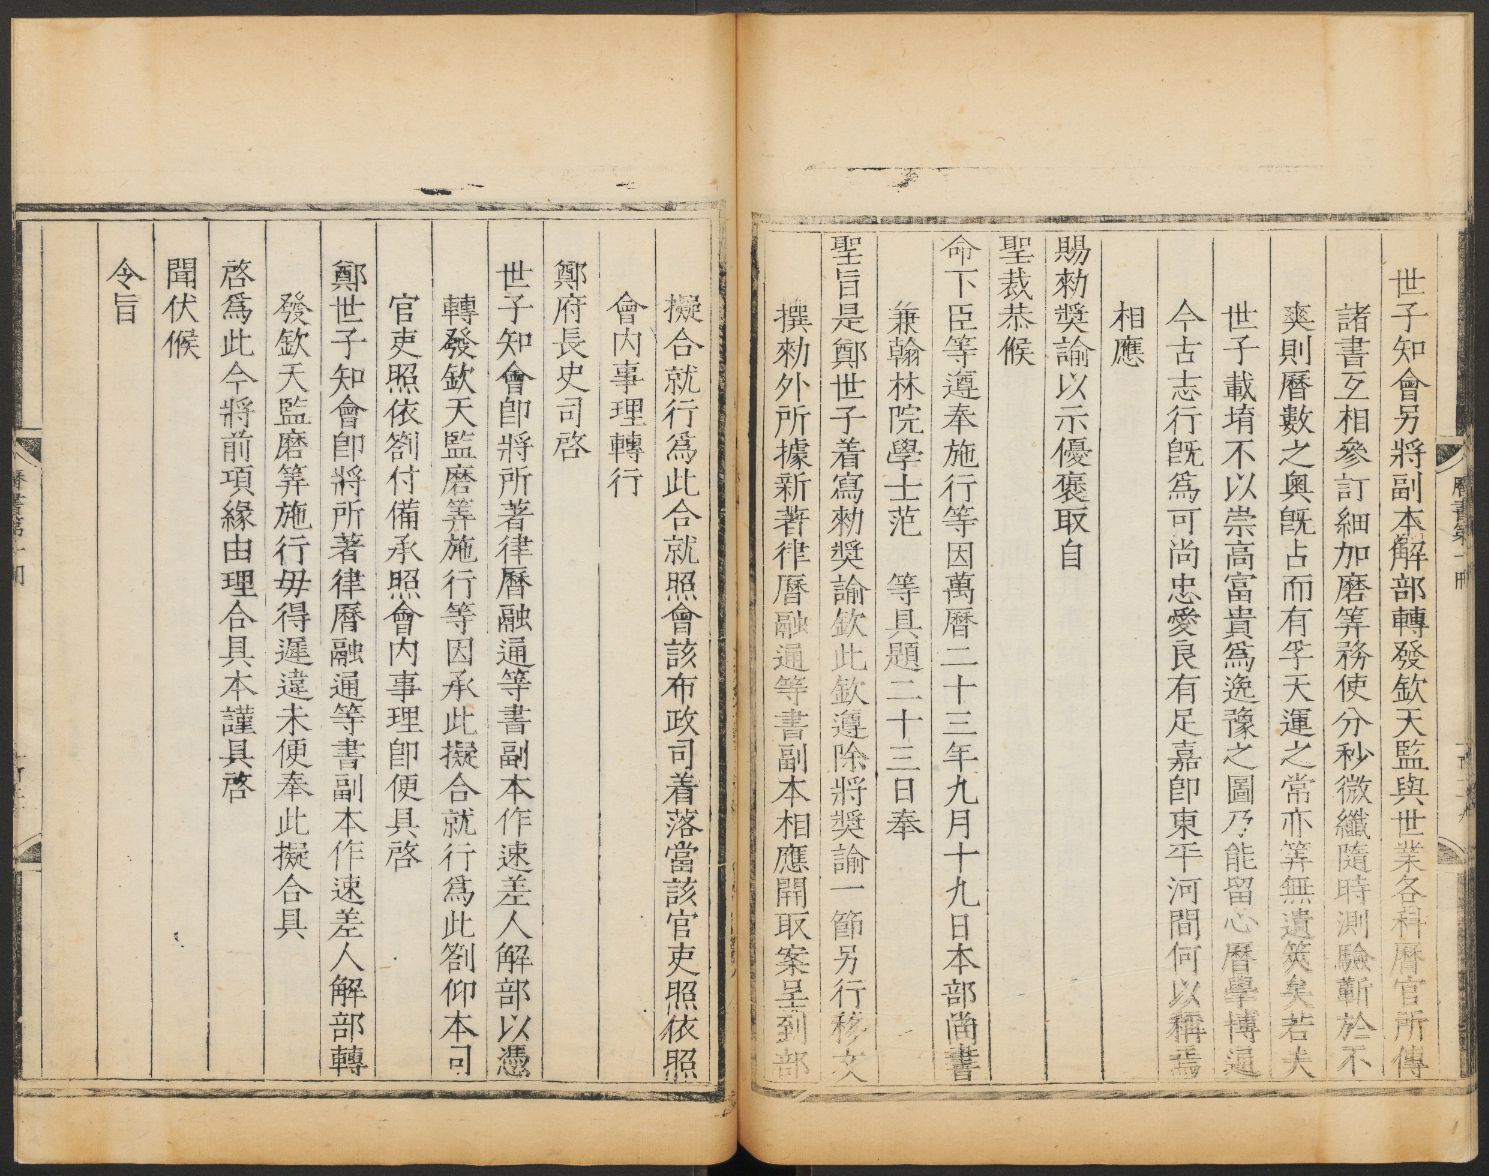 世子知會另將副本解部轉發欽天監與世業各科曆官所傳
諸書互相參訂細加磨筭務使分秒微纖隨時測驗蘄於不
爽則曆數之奧旣占而有孚天運之常亦筭無遺筴矣若夫
世子載堉不以崇高富貴爲逸豫之圖乃能留心曆學博通
今古志行旣爲可尚忠愛良有足嘉卽東平河間何以稱焉
相應
賜勑奬諭以示優褒取自
聖裁恭候
命下臣等遵奉施行等因萬曆二十三年九月十九日本部尚書
兼翰林院學士范 等具題二十三日奉
聖旨是鄭世子着寫勑奬諭欽此欽遵除將奬諭一節另行移文
撰勑外所據新著律曆融通等書副本相應開取案呈到部
擬合就行爲此合就照會該布政司着落當該官吏照依照
會內事理轉行
鄭府長史司啓
世子知會卽將所著律曆融通等書副本作速差人解部以憑
轉發欽天監磨筭施行等因承此擬合就行爲此劄仰本司
官吏照依劄付備承照會內事理卽便具啓
鄭世子知會卽將所著律曆融通等書副本作速差人解部轉
發欽天監磨筭施行毋得遲違未便奉此擬合具
啓爲此今將前項緣由理合具本謹具啓
聞伏候
令旨
曆書第